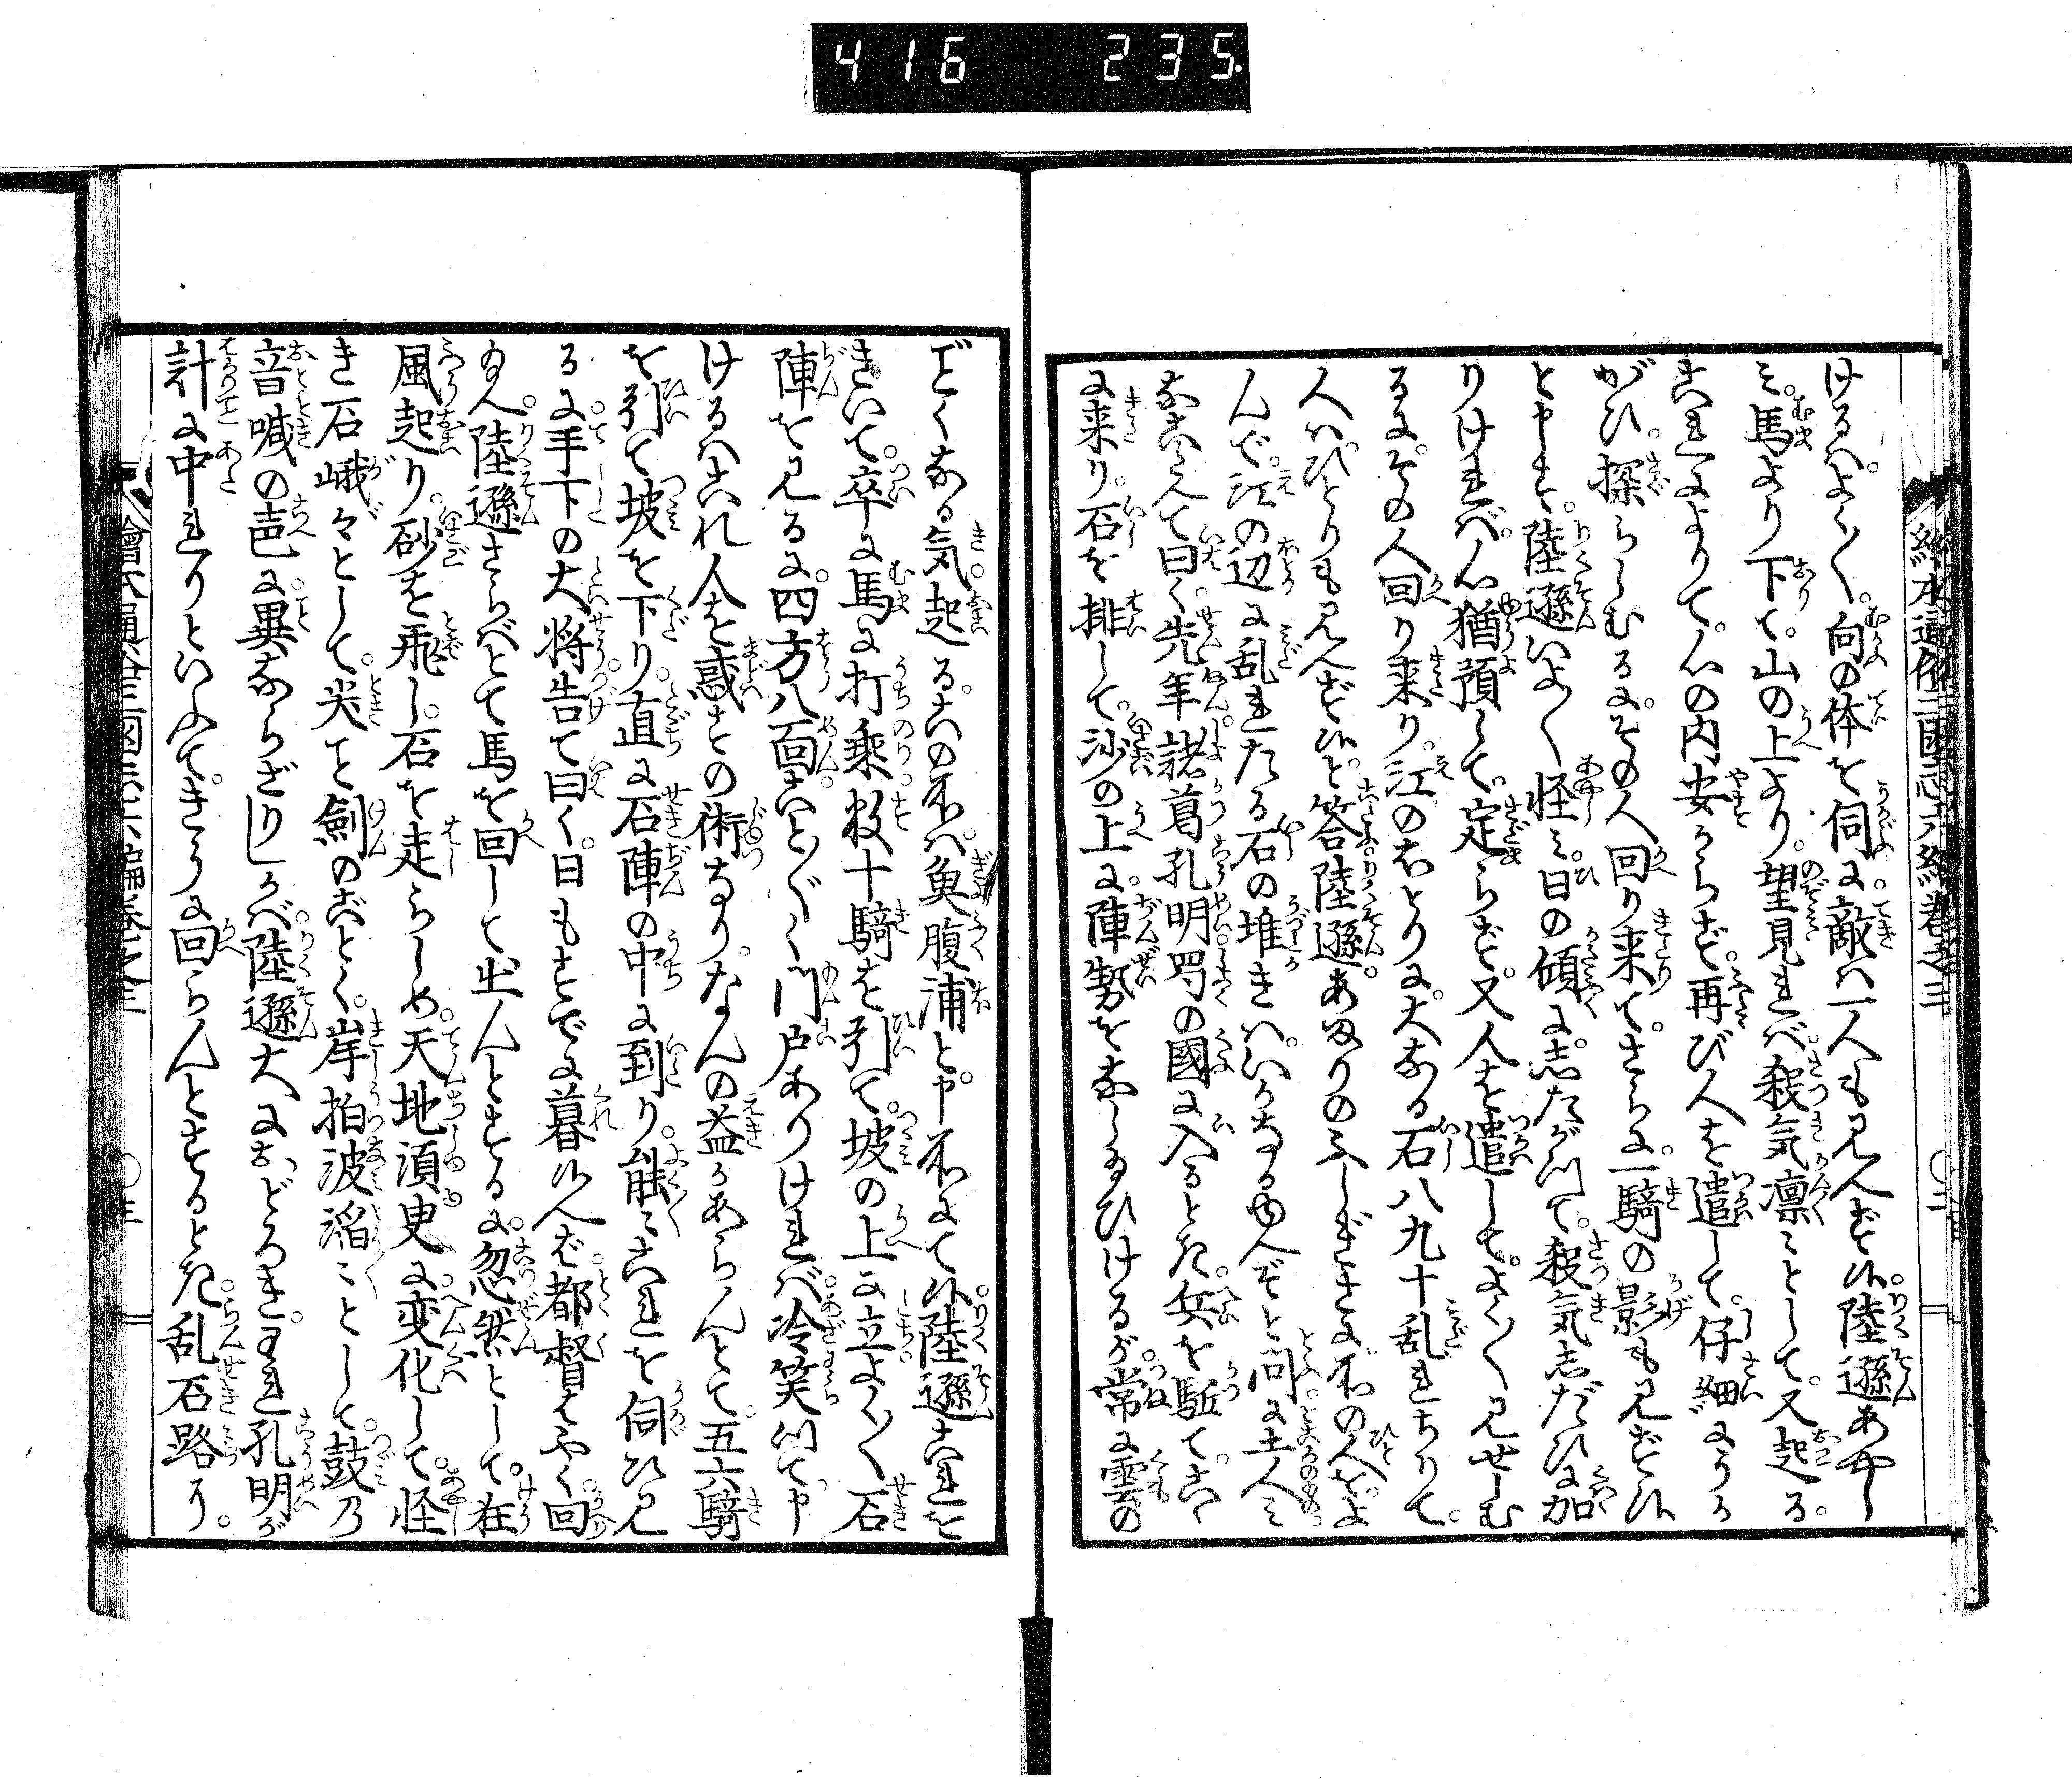 416 235.
絵本通俗三国志六編巻之三 〇二
けるハよく〳〵向の体を伺ふに敵ハ一人も見えず候陸遜あやし
ミ馬より下て山の上より望見れバ殺気凛〻として又起る
これによりて心の内安からず再び人を遣して仔細にうか
がひ探らしむるにその人回り来てさらに一騎の影も見えず候
と申す陸遜いよ〳〵怪ミ日の傾にしたがつて殺気しだひに加
りけれバ心猶預して定らず又人を遣してよく〳〵見せしむ
るにその人回り来り江のほとりに大なる石八九十乱れちりて
人ハひとりも見えず候と答陸遜あまりのふしぎさに所の人をよ
んで江の辺に乱れたる石の堆きハいかなるゆえぞと問に土人ミ
なこたへて曰く先年諸葛孔明蜀の國に入るとき兵を駈てこゝ
に来り石を排して沙の上に陣勢をなしぬひけるが常に雲の
ごとくなる気起るこの所ハ魚腹浦と申所にて候陸遜これを
きいて卒に馬に打乗数十騎を引て坡の上に立よく〳〵石
陣を見るに四方八面こと〴〵く門戸ありけれバ冷笑つて申
けるハこれ人を惑すの術なりなんの益かあらんとて五六騎
を引て坡を下り直に石陣の中に到り能〻これを伺ひ見
るに手下の大将告て曰く日もすでに暮候えバ都督はやく回
ゑへ陸遜さらバとて馬を回して出んとするに忽然として在
風起り砂を飛し石を走らしめ天地須臾に変化して怪
き石峨々として尖こと劍のごとく岸拍波滔〻として鼓乃
音喊の声に異ならざりしかバ陸遜大におどろきわれ孔明が
計に中れりといふてきうに回らんとするとき乱石路り
繪本通俗三國志六編巻之三 〇三